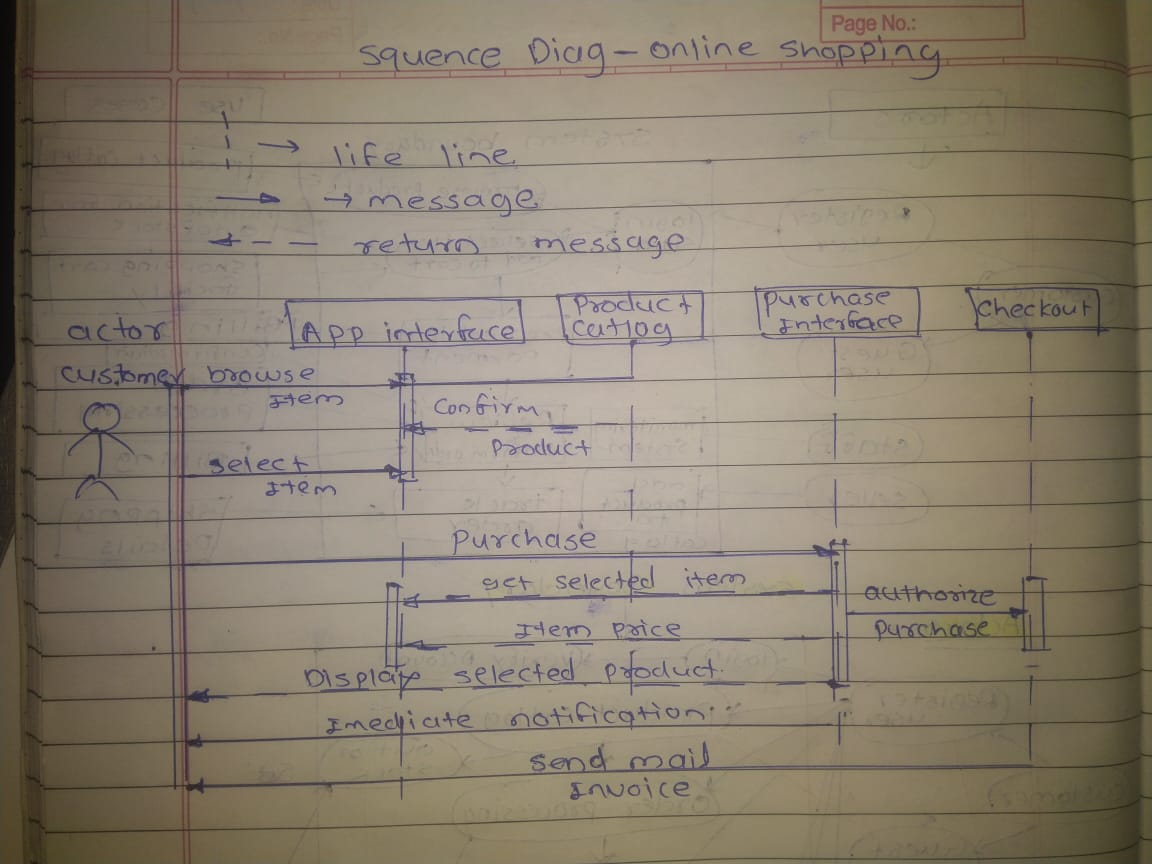 Page No.:
Squence Diag - online shopping
→ life line
→ message
return message
actor
App interface
Product
Catlog
Purchase
Interface
Checkout
customer
browse
Item
Confirm
Product
select
Item
Purchase
get selected item
authorize
Purchase
Item Price
Display selected Product
Imediate notification
send mail
Invoice